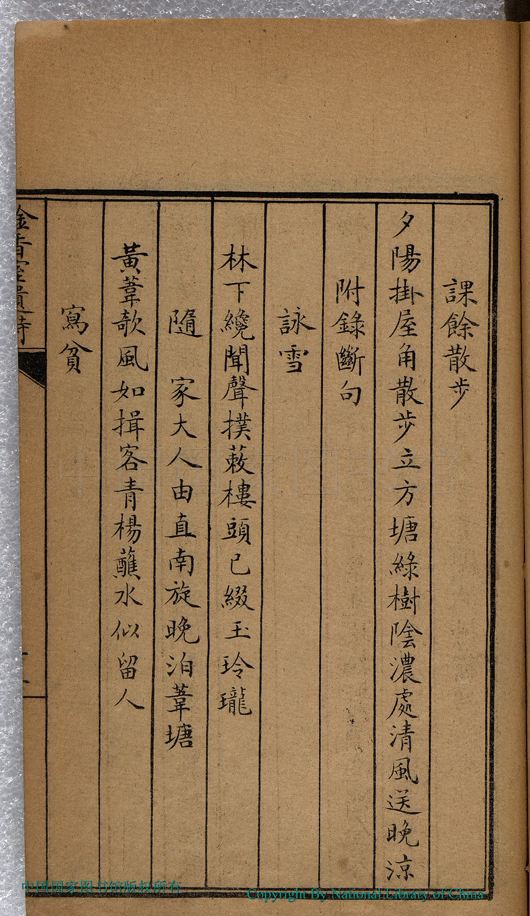 課餘散步
夕陽掛屋角散步立方塘綠樹陰濃處清風送晚涼
附錄斷句
詠雪
林下纔聞聲撲蔌樓頭已綴玉玲瓏
隨 家大人由直南旋晚泊葦塘
黃葦欹風如揖客青楊蘸水似留人
寫貧
中國國家图书馆版权所有
Copyright By National Library of China